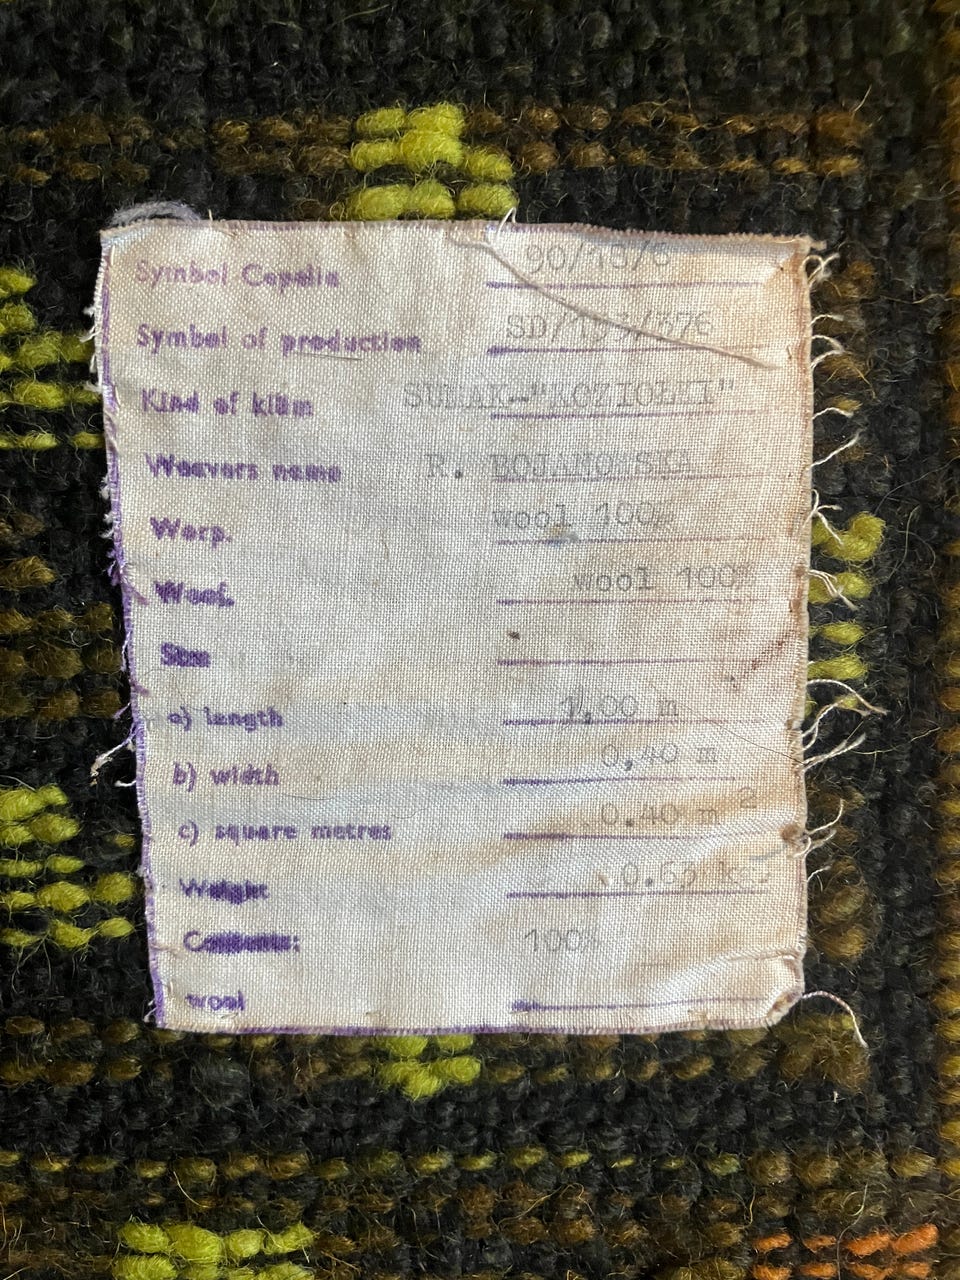 Symbol Cepelia 90/18/6
Symbol of production SD/193/376
Kind of kilim SUMAK-"KOZIOŁKI"
Weavers name R. BOJANOWSKA
Warp. wool 100%
Woof. wool 100%
Size
a) length 1,00 m
b) width 0,40 m
c) square metres 0.40 m²
Weight 0.63 kg
Contents: 100%
wool